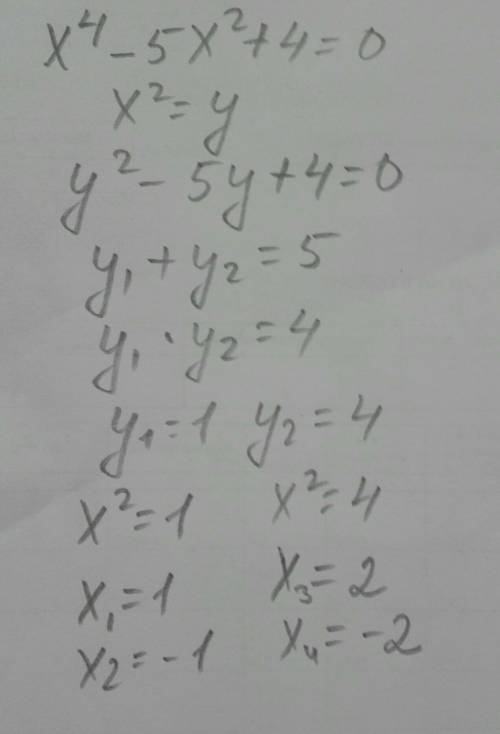 x⁴ - 5x² + 4 = 0
x² = y
y² - 5y + 4 = 0
y₁ + y₂ = 5
y₁ · y₂ = 4
y₁ = 1 y₂ = 4
x² = 1 x² = 4
x₁ = 1 x₃ = 2
x₂ = -1 x₄ = -2